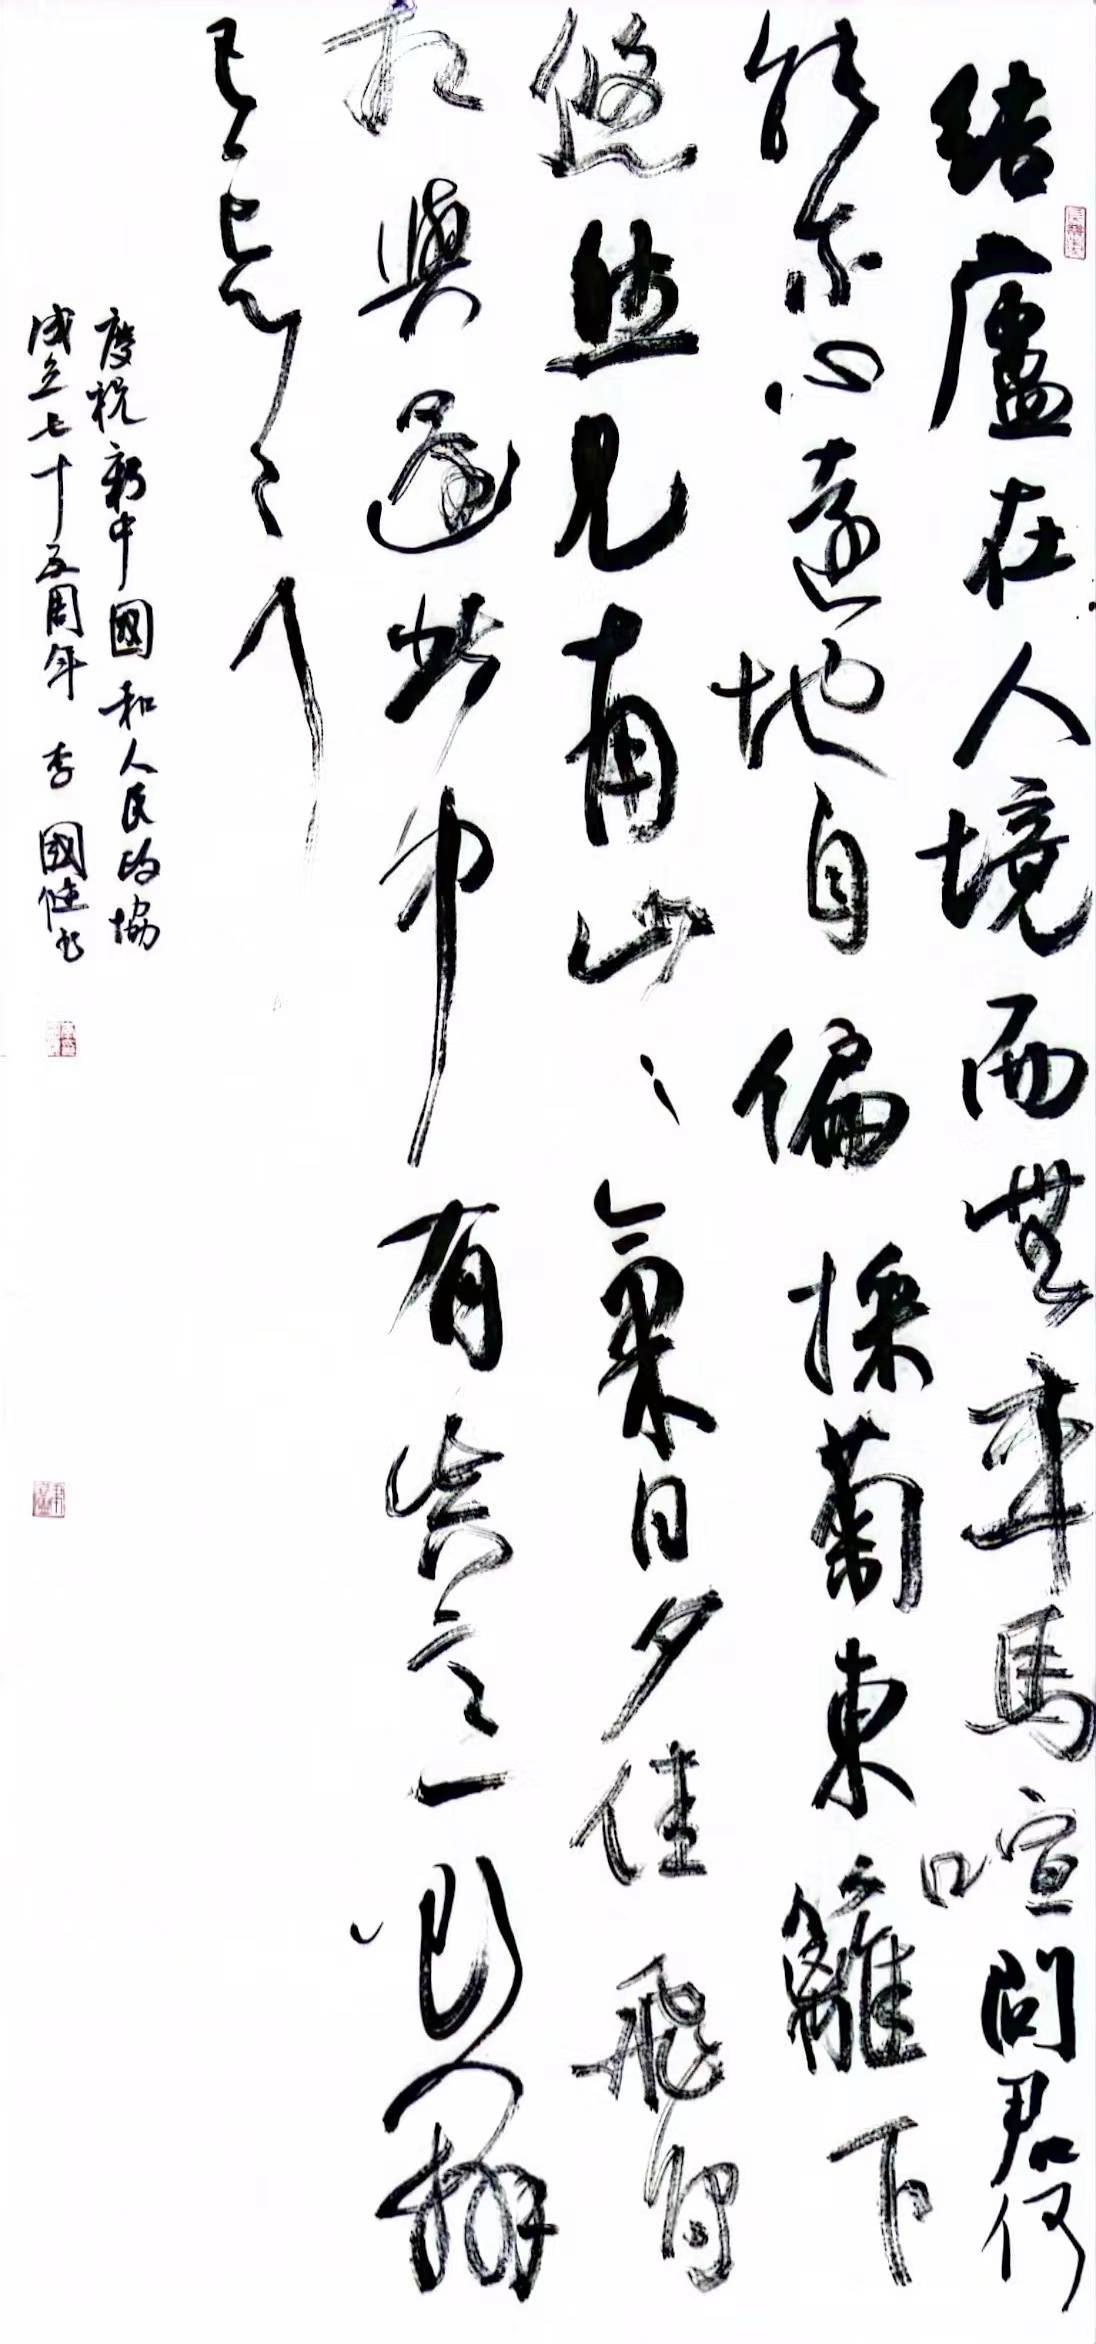 結廬在人境而無車馬喧問君何
能尔心遠地自偏採菊東籬下
悠然見南山〻氣日夕佳飛鳥
相與還此中有真意欲辨
已忘言
慶祝新中國和人民政協
成立七十五周年 李國健書